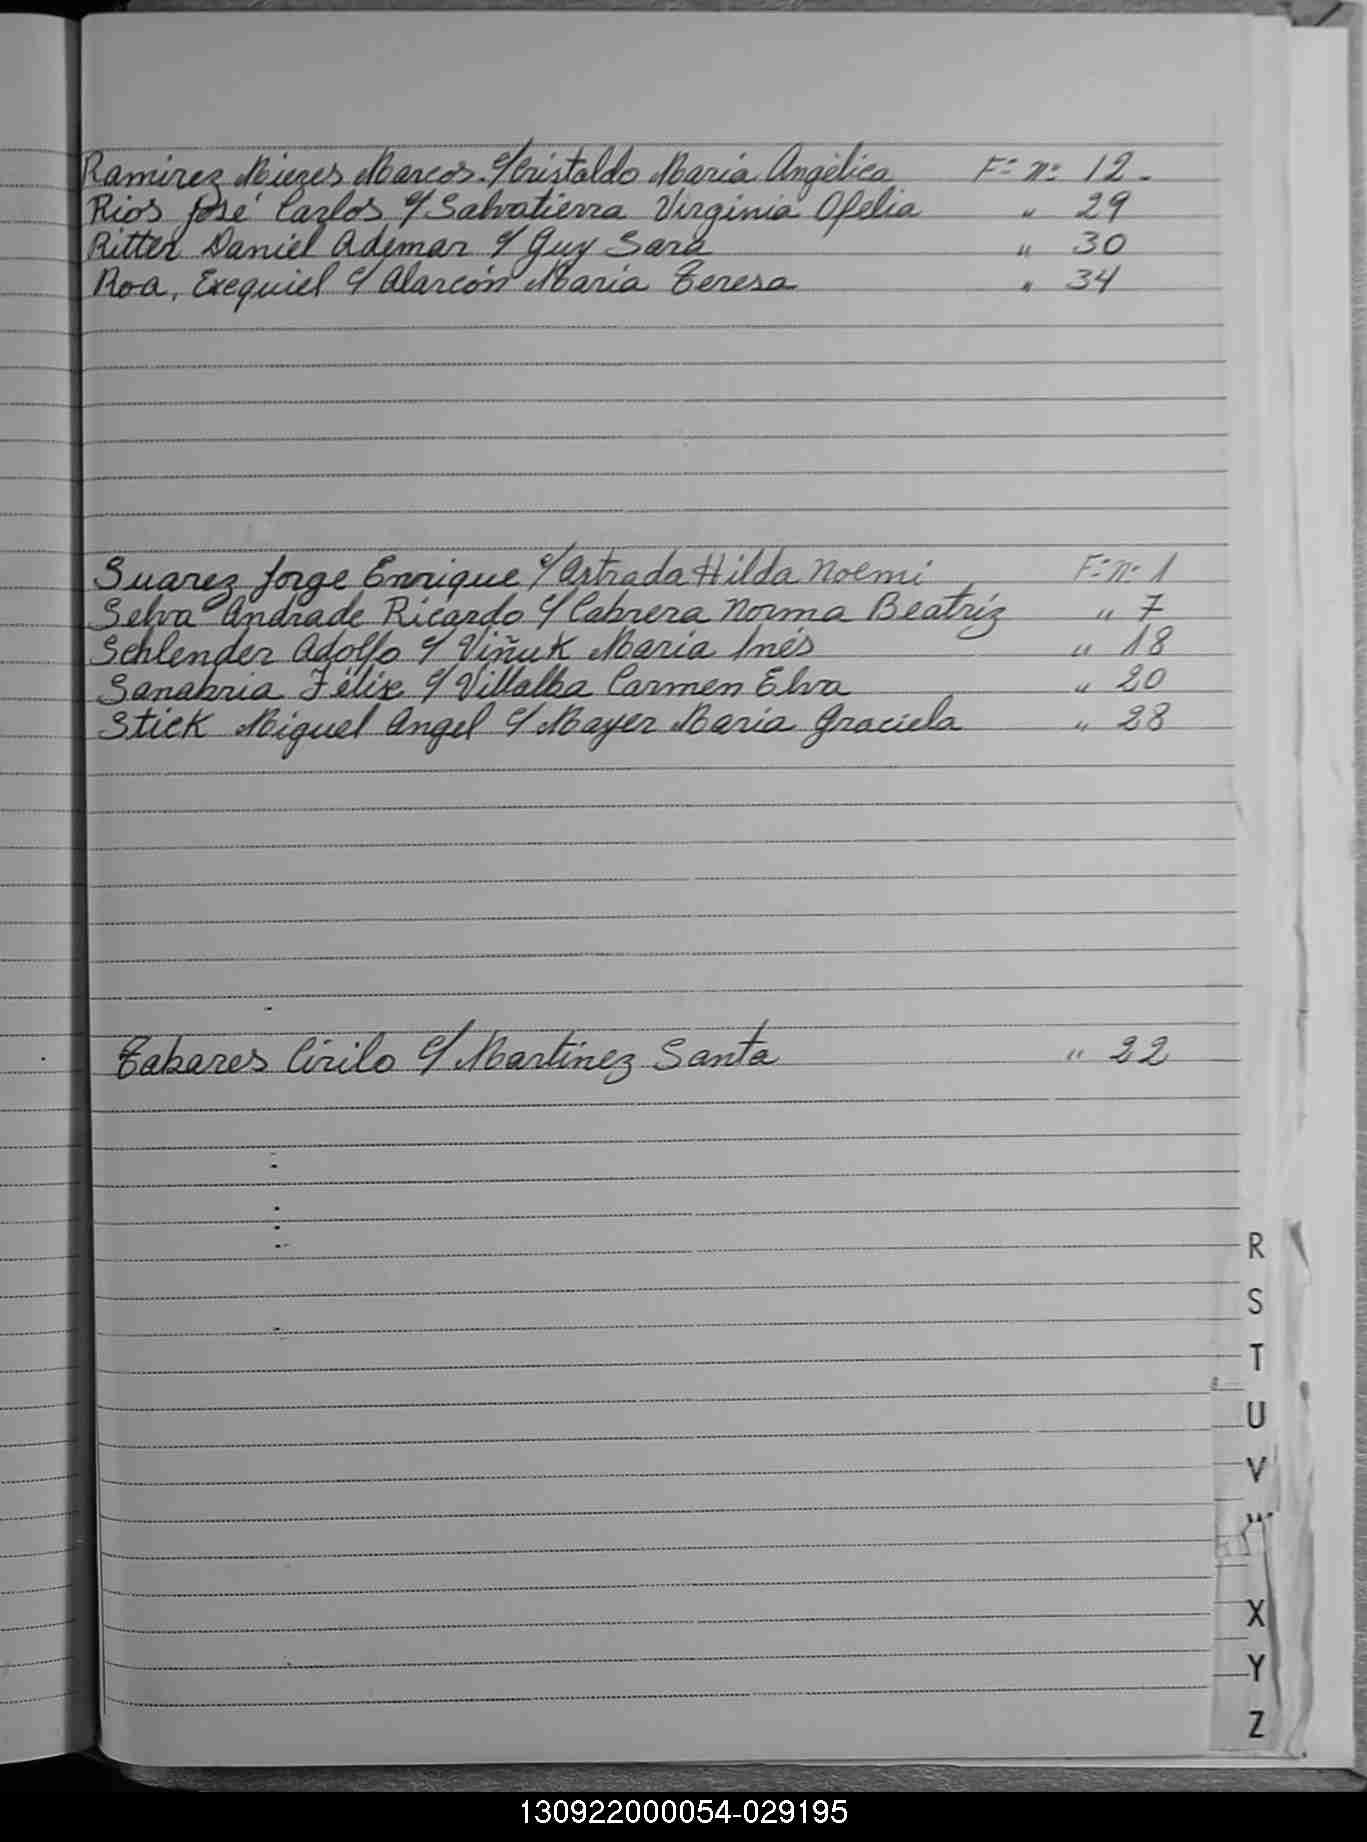 Ramirez Mieres Marcos c/Cristaldo María Angélica F= nº 12.
Rios José Carlos c/ Salvatierra Virginia Ofelia " 29
Ritter Daniel Ademar c/ Guy Sara " 30
Roa, Exequiel c/ Alarcón María Teresa " 34
Suarez Jorge Enrique c/ Astrada Hilda Noemi F= nº 1
Selva Andrade Ricardo c/ Cabrera Norma Beatríz " 7
Schlender Adolfo c/ Viñuk María Inés " 18
Sanabria Félix c/ Villalba Carmen Elva " 20
Stick Miguel Angel c/ Mayer María Graciela " 28
Tabares Cirilo c/ Martínez Santa " 22
R
S
T
U
V
W
X
Y
Z
130922000054-029195